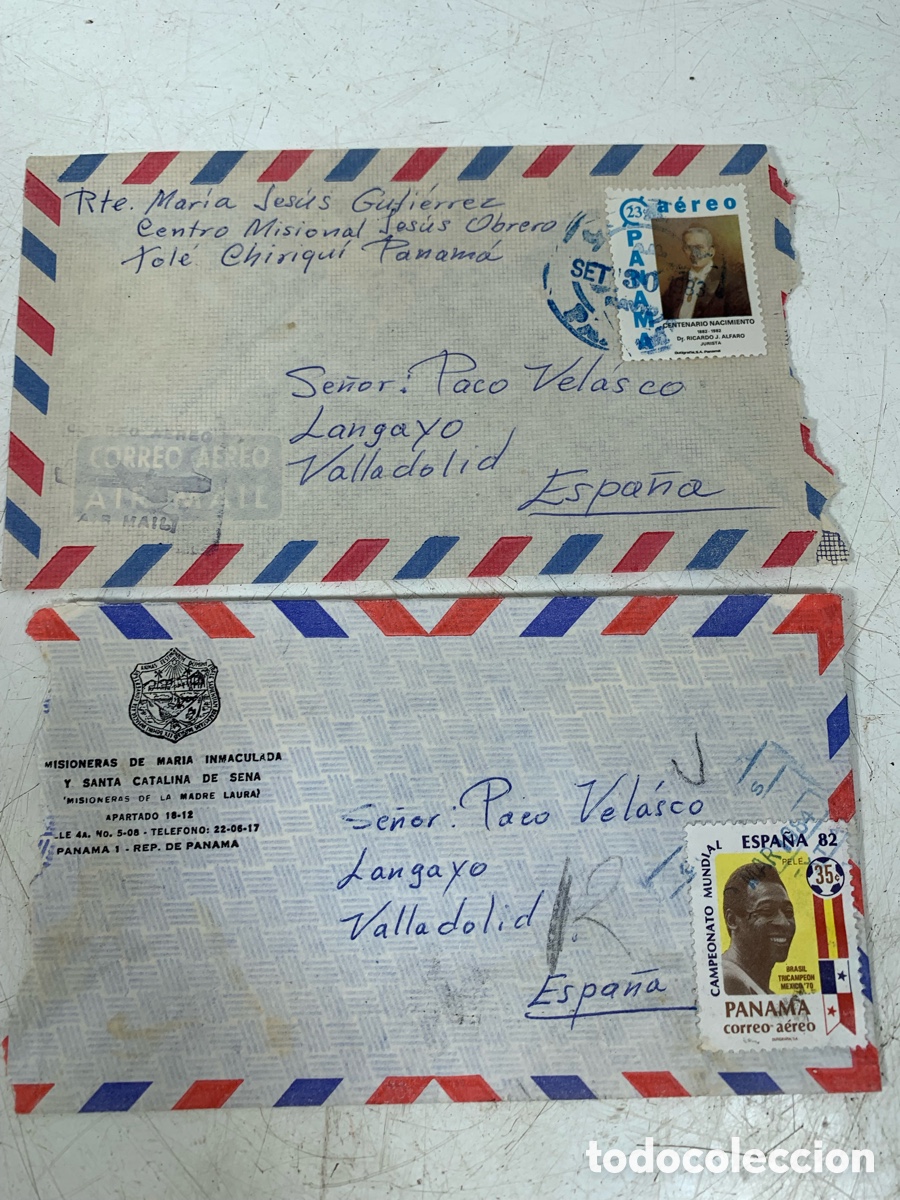 Rte. María Jesús Gutiérrez
Centro Misional Jesús Obrero
Tolé Chiriquí Panamá
23¢ aéreo
PANAMA
SET 30
CENTENARIO NACIMIENTO
1882 - 1982
Dr. RICARDO J. ALFARO
JURISTA
Señor: Paco Velásco
Langayo
Valladolid
España
CORREO AEREO
AIR MAIL
AIR MAIL
MISIONERAS DE MARIA INMACULADA
Y SANTA CATALINA DE SENA
(MISIONERAS DE LA MADRE LAURA)
APARTADO 18-12
LE 4A. No. 5-08 - TELEFONO: 22-06-17
PANAMA 1 - REP. DE PANAMA
Señor: Paco Velásco
Langayo
Valladolid
España
12
CAMPEONATO MUNDIAL
ESPAÑA 82
PELE
35¢
BRASIL
TRICAMPEON
MEXICO '70
PANAMA
correo aéreo
todocoleccion